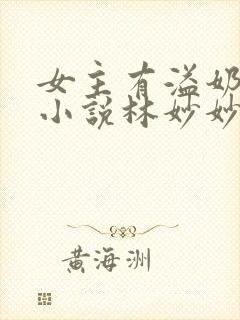 女主有溢奶
小说林妙妙
黄海洲